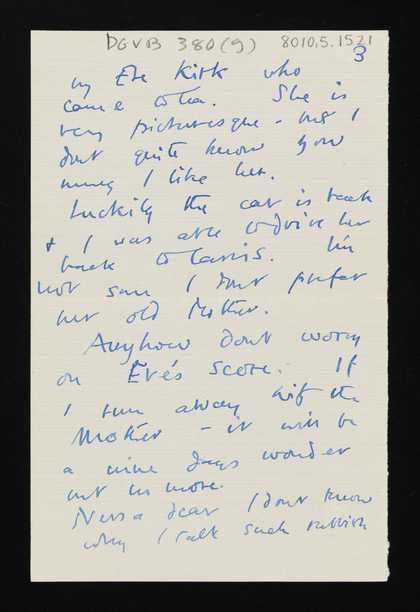 DGVB 380(9) 8010.5.1521
3
by Eve Kirk who
came to tea. She is
very picturesque - but I
dont quite know how
much I like her.
Luckily the car is back
& I was able to drive her
back to Cassis. Im
not sure I dont prefer
her old Mother.
Anyhow dont worry
on Eve's score. If
I run away with the
Mother - it will be
a nine days wonder
but no more.
Nessa dear I dont know
why I talk such rubbish